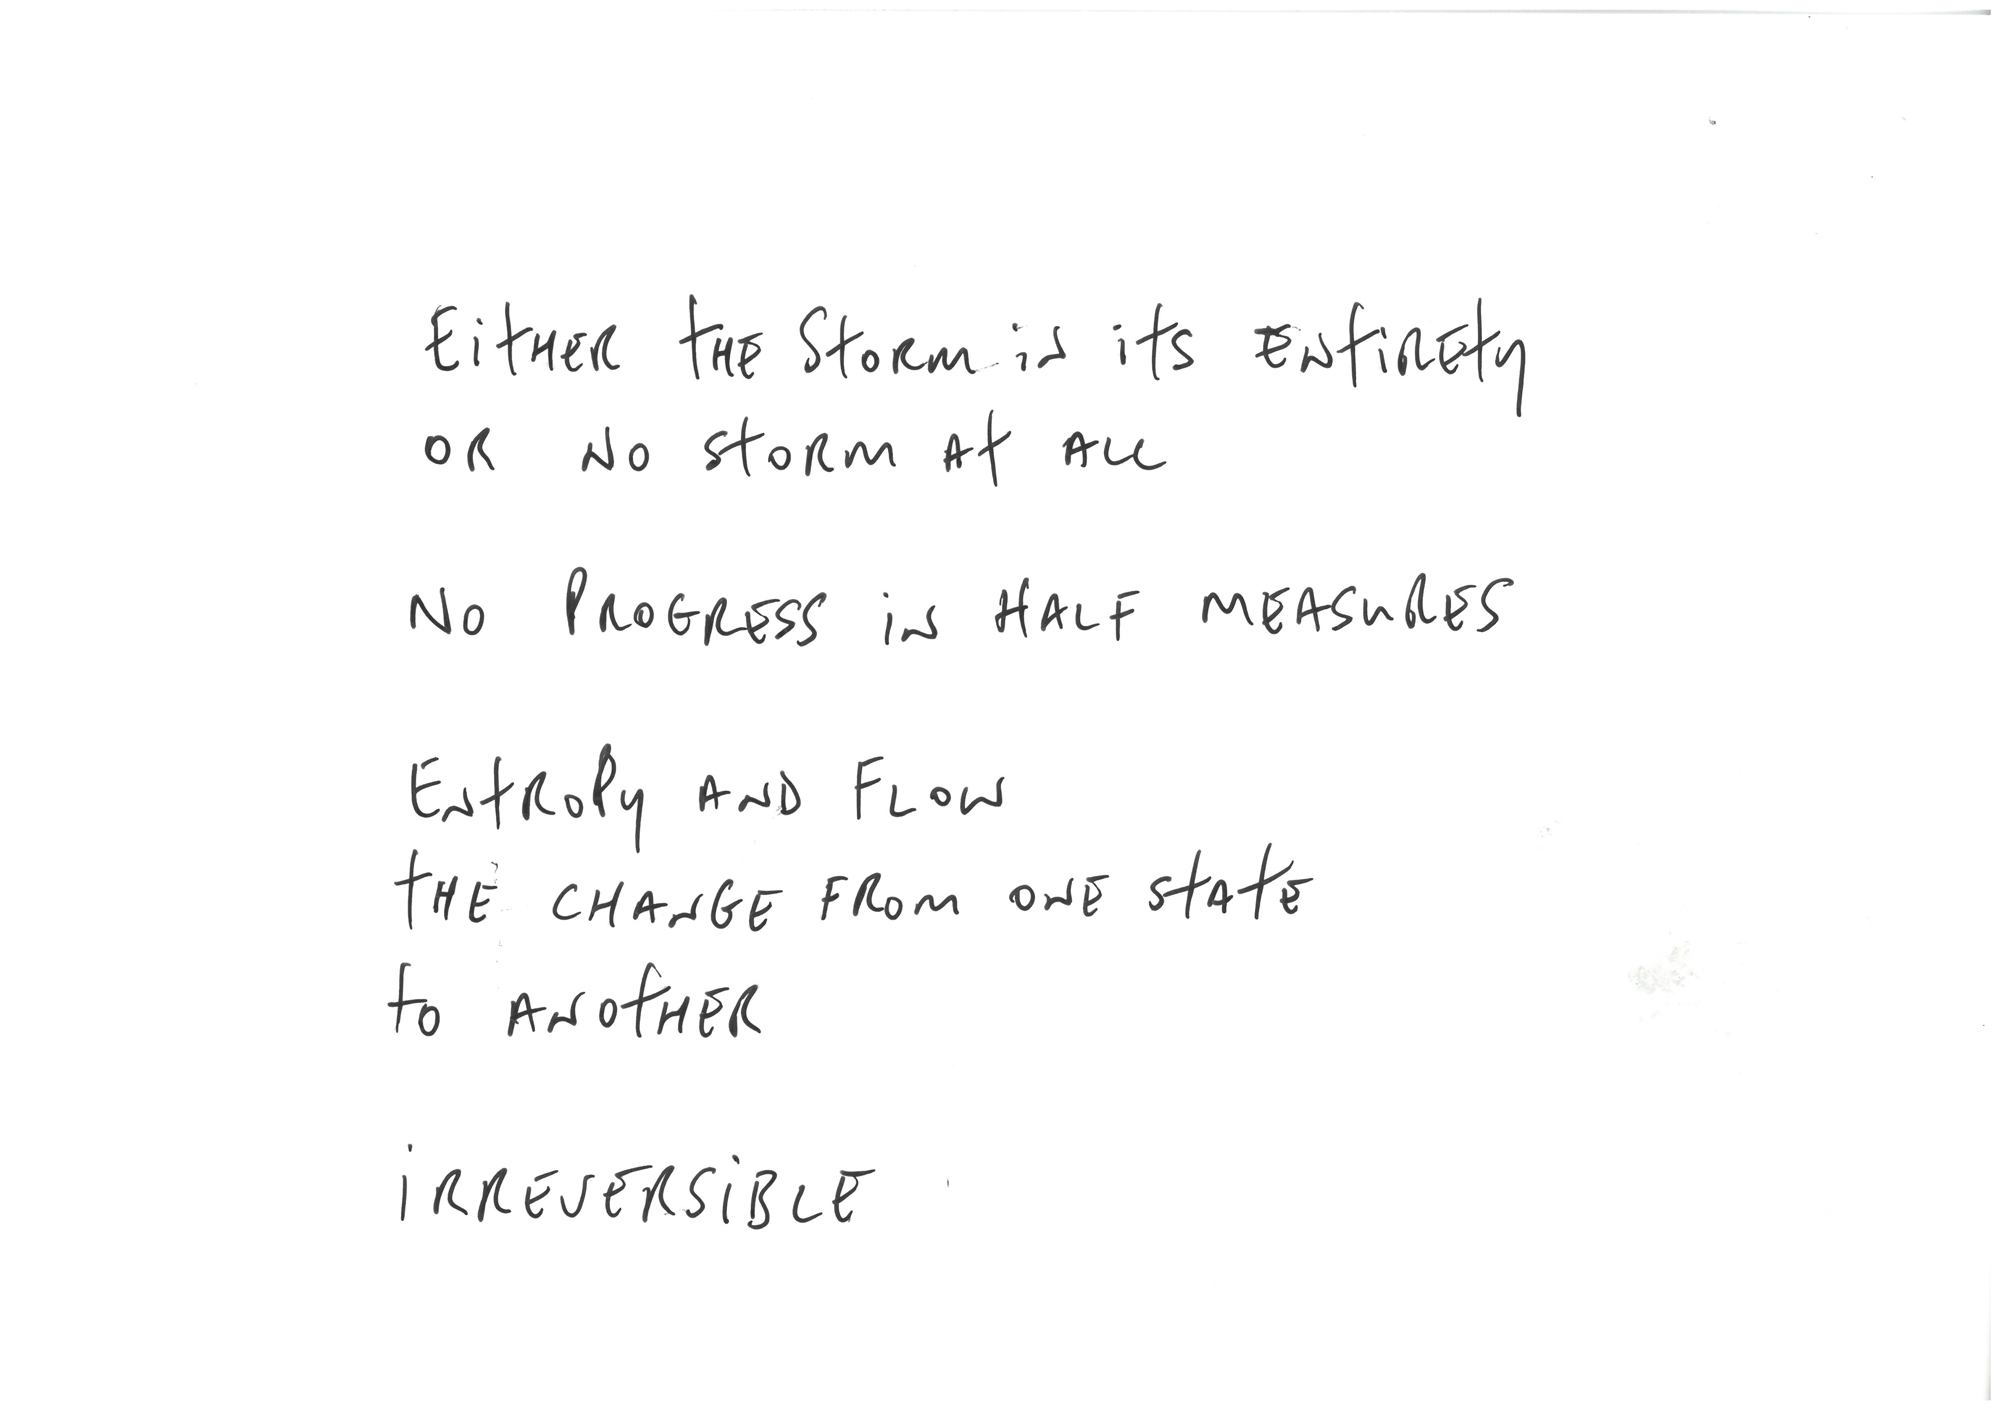 EitHER tHE StORm in its ENtiREty
OR NO StORM At ALL
NO PROGRESS iN HALF MEASuRES
ENtROPy AND FLOW
tHE CHANGE FROm ONE StAtE
tO ANOtHER
iRREVERSiBLE